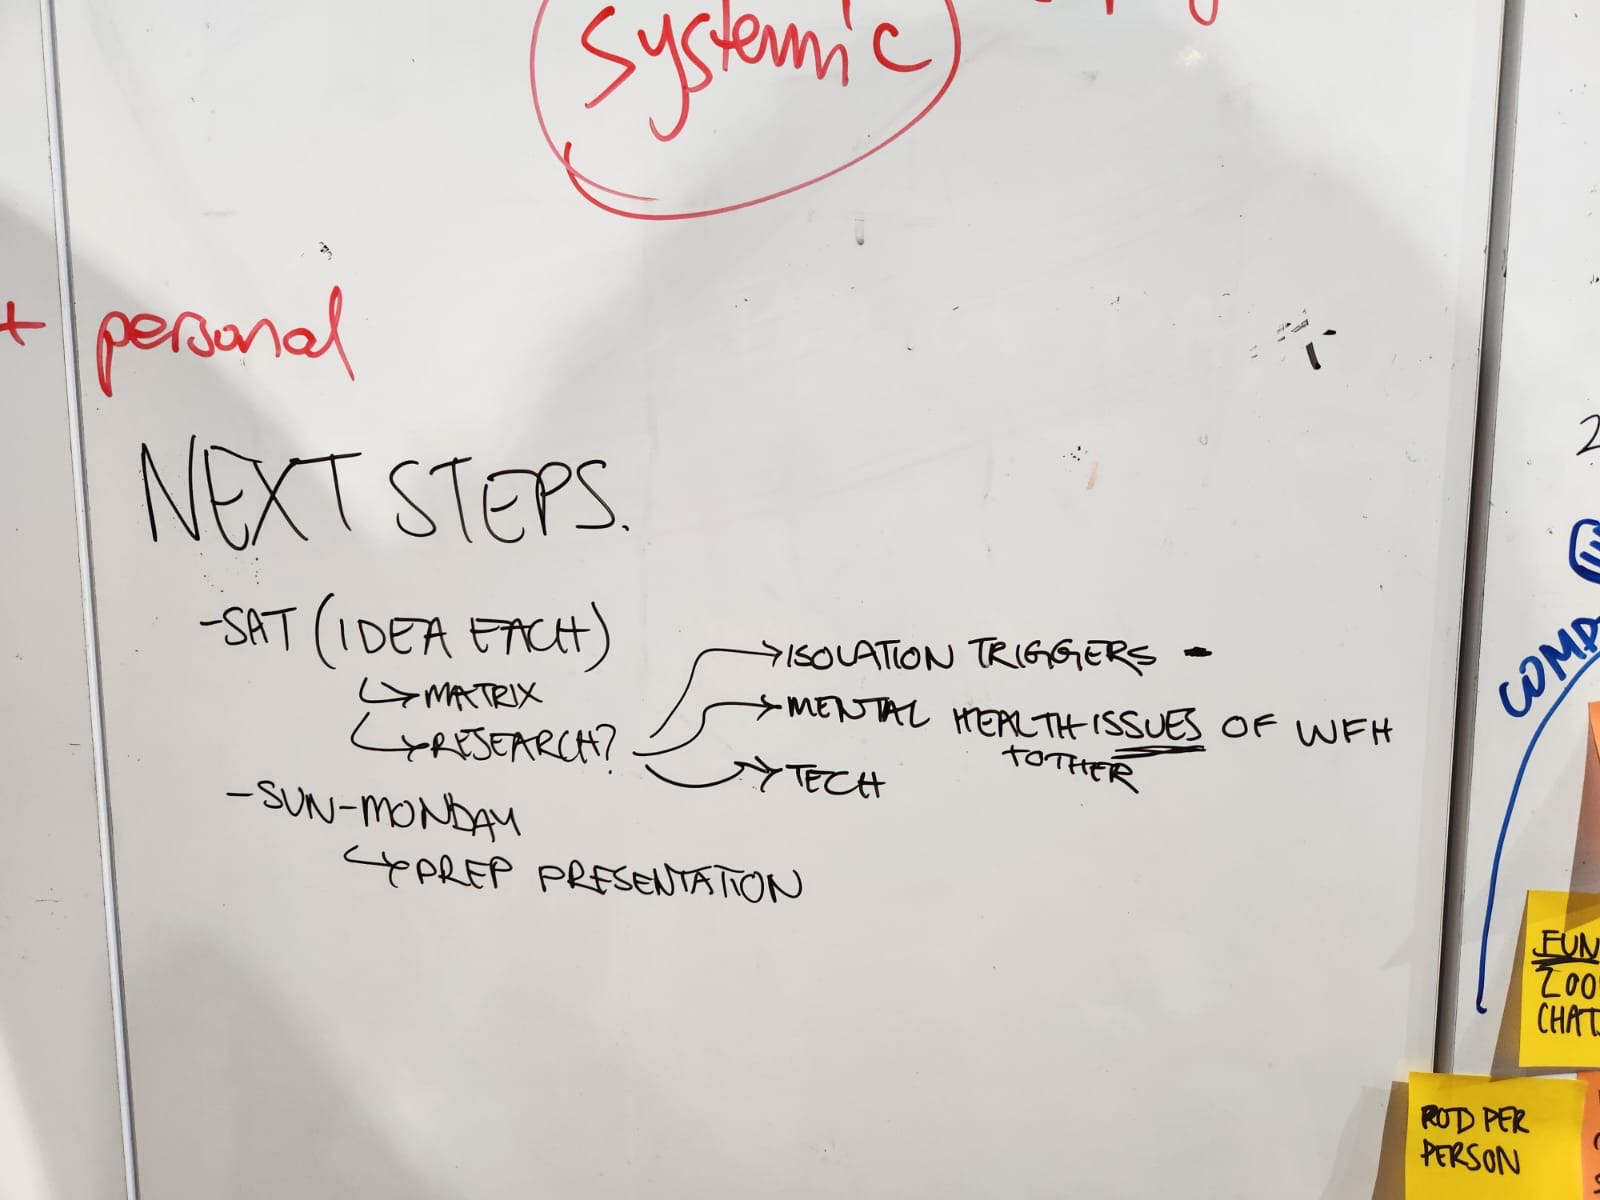 systemic
+ personal
NEXT STEPS.
-SAT (IDEA EACH)
↳MATRIX
↳RESEARCH?
→ISOLATION TRIGGERS -
→MENTAL HEALTH ISSUES OF WFH
+OTHER
→TECH
-SUN-MONDAY
↳PREP PRESENTATION
2
COMP
FUN
CHAT
ROD PER
PERSON